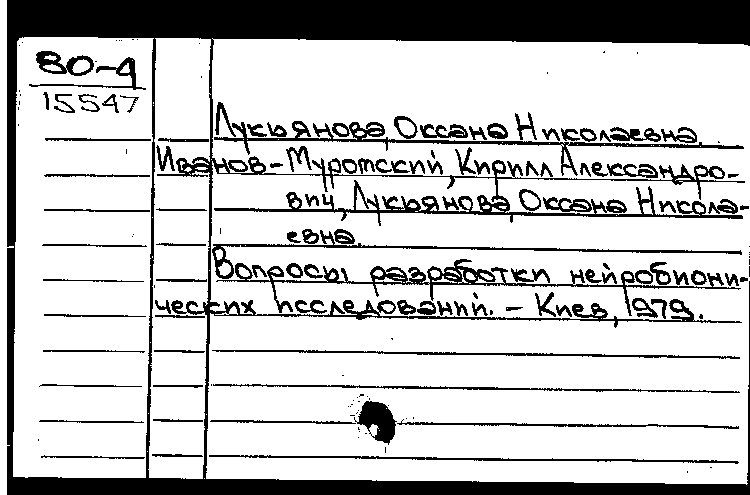 80-4
15547
Лукьянова, Оксана Николаевна.
Иванов-Муромский, Кирилл Александро-
вич, Лукьянова, Оксана Никола-
евна.
Вопросы разработки нейробиони-
ческих исследований. – Киев, 1979.